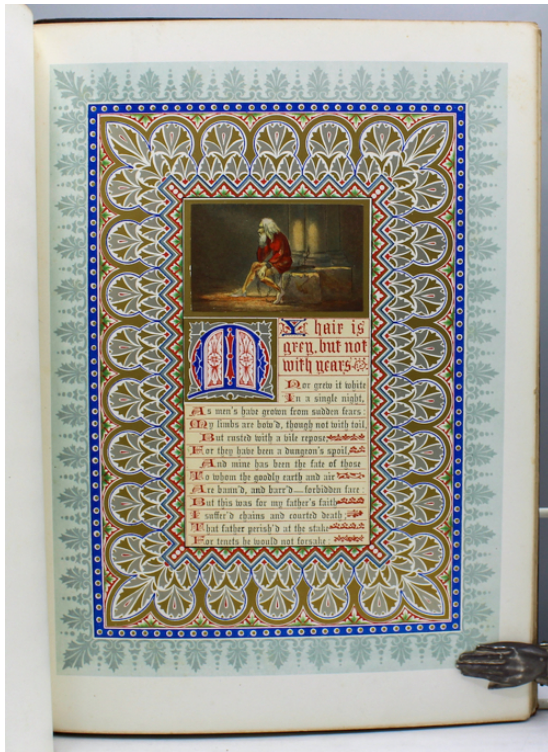 MY hair is
grey, but not
with years
Nor grew it white
In a single night,
As men's have grown from sudden fears:
My limbs are bow'd, though not with toil,
But rusted with a vile repose
For they have been a dungeon's spoil,
And mine has been the fate of those
To whom the goodly earth and air
Are bann'd, and barr'd—forbidden fare:
But this was for my father's faith
I suffer'd chains and courted death;
That father perish'd at the stake
For tenets he would not forsake: